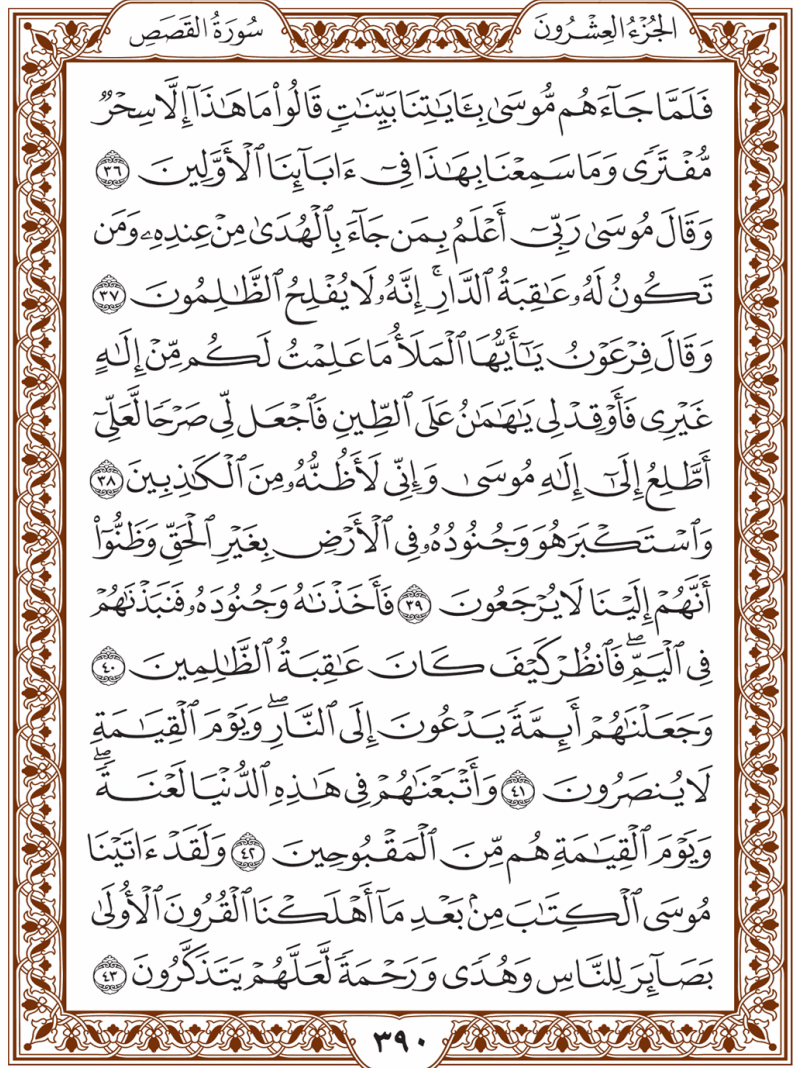 الجُزْءُ العِشْرُونَ
سُورَةُ القَصَصِ
فَلَمَّا جَآءَهُم مُّوسَىٰ بِـَٔايَـٰتِنَا بَيِّنَـٰتٖ قَالُواْ مَا هَـٰذَآ إِلَّا سِحۡرٞ
مُّفۡتَرٗى وَمَا سَمِعۡنَا بِهَـٰذَا فِيٓ ءَابَآئِنَا ٱلۡأَوَّلِينَ ٣٦
وَقَالَ مُوسَىٰ رَبِّيٓ أَعۡلَمُ بِمَن جَآءَ بِٱلۡهُدَىٰ مِنۡ عِندِهِۦ وَمَن
تَكُونُ لَهُۥ عَـٰقِبَةُ ٱلدَّارِۚ إِنَّهُۥ لَا يُفۡلِحُ ٱلظَّـٰلِمُونَ ٣٧
وَقَالَ فِرۡعَوۡنُ يَـٰٓأَيُّهَا ٱلۡمَلَأُ مَا عَلِمۡتُ لَكُم مِّنۡ إِلَـٰهٍ
غَيۡرِي فَأَوۡقِدۡ لِي يَـٰهَـٰمَـٰنُ عَلَى ٱلطِّينِ فَٱجۡعَل لِّي صَرۡحٗا لَّعَلِّيٓ
أَطَّلِعُ إِلَىٰٓ إِلَـٰهِ مُوسَىٰ وَإِنِّي لَأَظُنُّهُۥ مِنَ ٱلۡكَـٰذِبِينَ ٣٨
وَٱسۡتَكۡبَرَ هُوَ وَجُنُودُهُۥ فِي ٱلۡأَرۡضِ بِغَيۡرِ ٱلۡحَقِّ وَظَنُّوٓاْ
أَنَّهُمۡ إِلَيۡنَا لَا يُرۡجَعُونَ ٣٩ فَأَخَذۡنَـٰهُ وَجُنُودَهُۥ فَنَبَذۡنَـٰهُمۡ
فِي ٱلۡيَمِّۖ فَٱنظُرۡ كَيۡفَ كَانَ عَـٰقِبَةُ ٱلظَّـٰلِمِينَ ٤٠
وَجَعَلۡنَـٰهُمۡ أَئِمَّةٗ يَدۡعُونَ إِلَى ٱلنَّارِۖ وَيَوۡمَ ٱلۡقِيَـٰمَةِ
لَا يُنصَرُونَ ٤١ وَأَتۡبَعۡنَـٰهُمۡ فِي هَـٰذِهِ ٱلدُّنۡيَا لَعۡنَةٗۖ
وَيَوۡمَ ٱلۡقِيَـٰمَةِ هُم مِّنَ ٱلۡمَقۡبُوحِينَ ٤٢ وَلَقَدۡ ءَاتَيۡنَا
مُوسَى ٱلۡكِتَـٰبَ مِنۢ بَعۡدِ مَآ أَهۡلَكۡنَا ٱلۡقُرُونَ ٱلۡأُولَىٰ
بَصَآئِرَ لِلنَّاسِ وَهُدٗى وَرَحۡمَةٗ لَّعَلَّهُمۡ يَتَذَكَّرُونَ ٤٣
٣٩٠